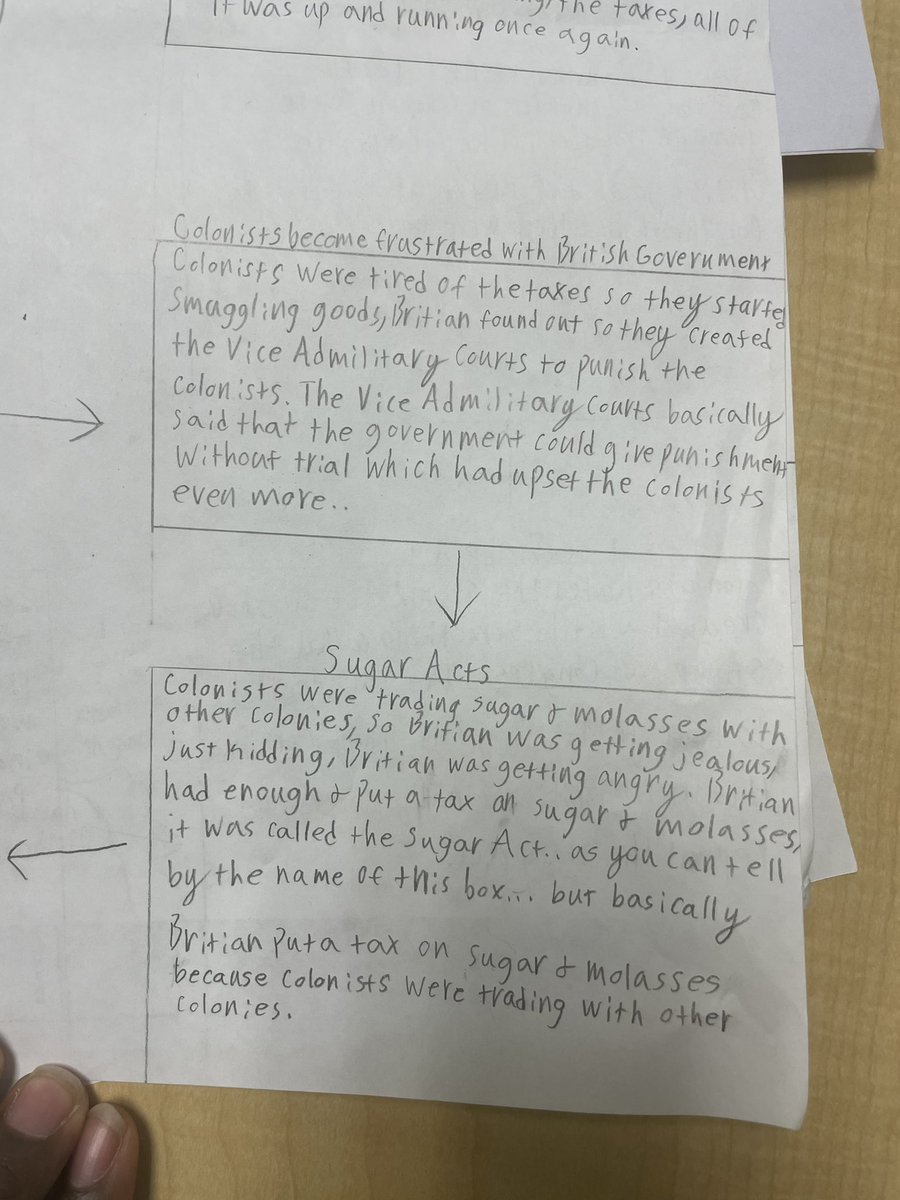 the taxes, all of
it was up and running once again.
Colonists become frustrated with British Government
Colonists were tired of the taxes so they started
Smuggling goods, Britian found out so they created
the Vice Admilitary Courts to punish the
colonists. The Vice Admilitary Courts basically
said that the government could give punishment
without trial which had upset the colonists
even more..
Sugar Acts
Colonists were trading sugar & molasses with
other colonies, so Britian was getting jealous,
just kidding, Britian was getting angry. Britian
had enough & put a tax on sugar & molasses,
it was called the Sugar Act.. as you can tell
by the name of this box... but basically
Britian put a tax on sugar & molasses
because colonists were trading with other
colonies.